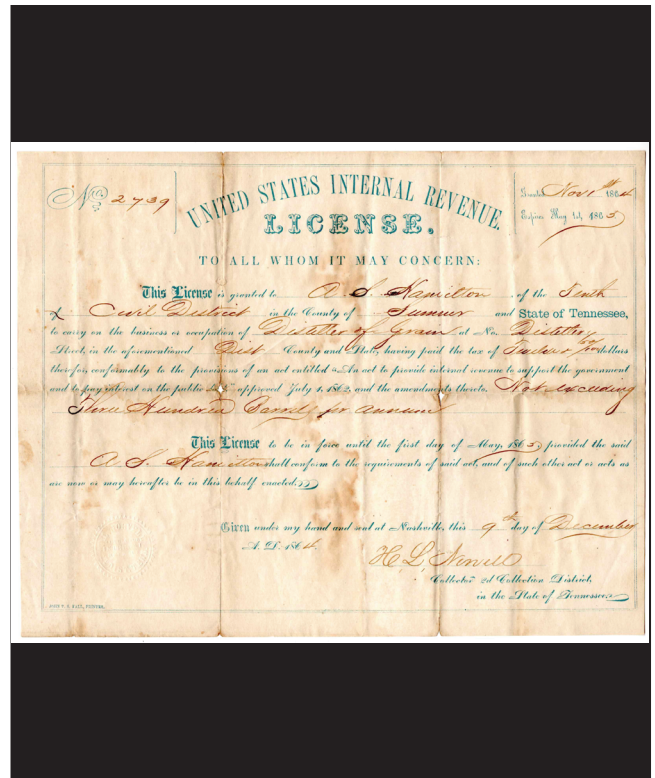 No. 2739
UNITED STATES INTERNAL REVENUE
LICENSE.
Nov 1st 1864
Expires May 1st, 1865
TO ALL WHOM IT MAY CONCERN:
This License is granted to A. S. Hamilton of the Tenth
Civil District in the County of Sumner and State of Tennessee,
to carry on the business or occupation of Distetter of Grain at No. Distettery
Street, in the aforementioned Dist County and State, having paid the tax of dollars
therefor, conformably to the provisions of an act entitled "An act to provide internal revenue to support the government
and to pay interest on the public approved July 1, 1862, and the amendments thereto. Not exceeding
Three Hundred Barrels per annum
This License to be in force until the first day of May, 1865, provided the said
A. S. Hamilton shall conform to the requirements of said act, and of such other act or acts as
are now or may hereafter be in this behalf enacted.
Given under my hand and seal at Nashville, this 9th day of December
A. D. 1864.
H L Norvell
Collector 2d Collection District,
in the State of Tennessee